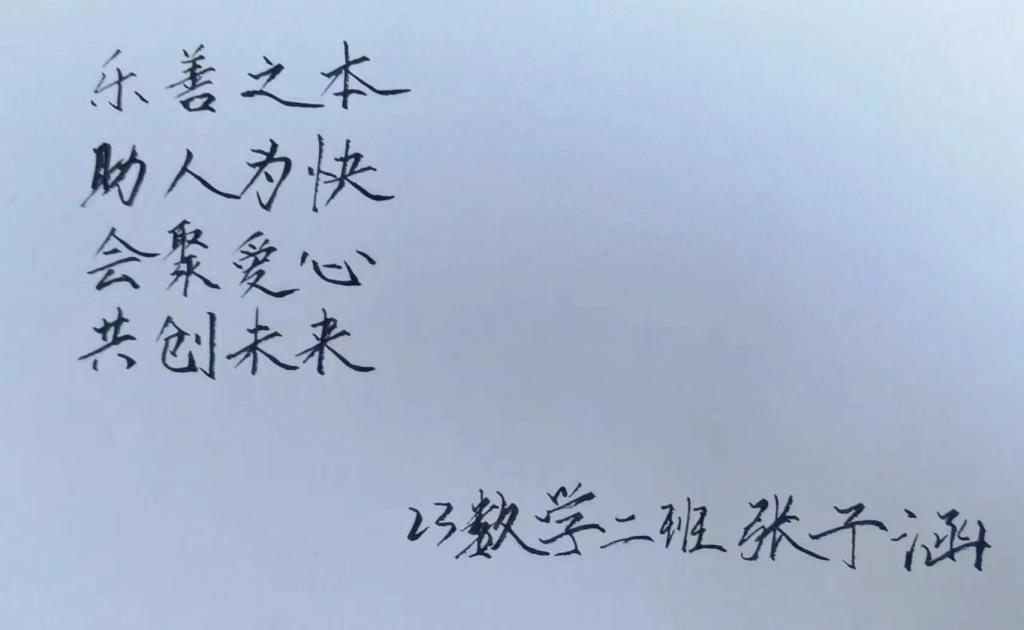 乐善之本
助人为快
会聚爱心
共创未来
23数学二班张子涵